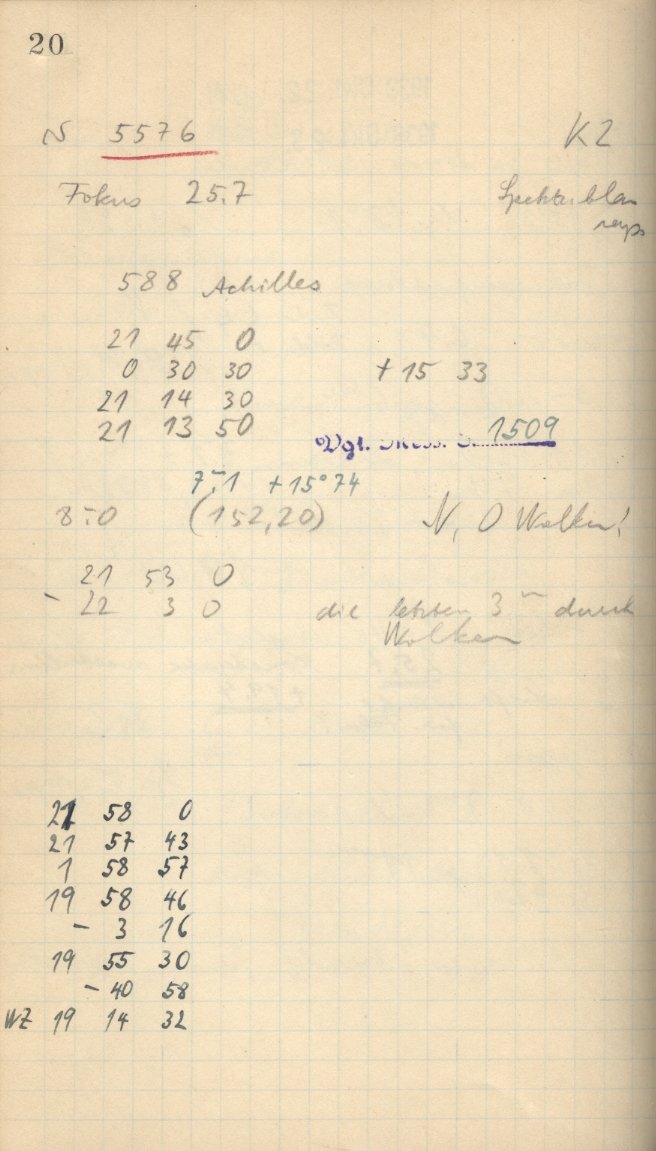 20
N 5576 K2
Fokus 25.7 Spektralblau
588 Achilles
21 45 0
0 30 30 + 15 33
21 14 30
21 13 50 Vgl. 1509
7m.1 +15°74
8m.0 (152,20) N, O Wolken!
21 53 0
- 22 3 0 die letzten 3m durch
Wolken
21 58 0
21 57 43
1 58 57
19 58 46
- 3 16
19 55 30
- 40 58
WZ 19 14 32